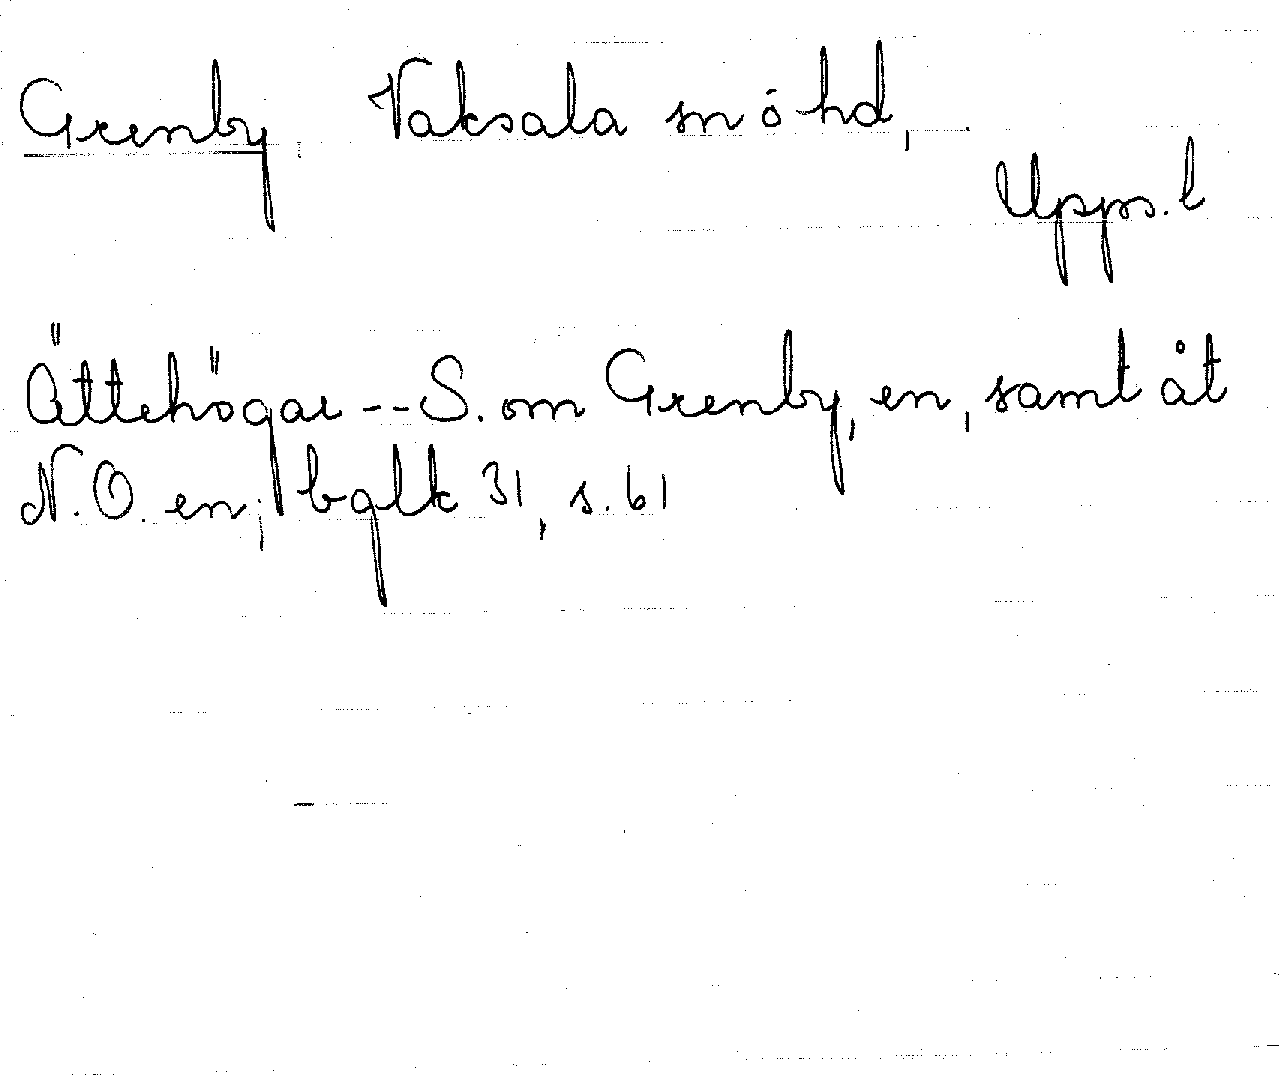 Grenby. Vaksala sn o hd,
Upps. l
Ättehögar -- S. om Grenby, en, samt åt
N.O. en; bglk 31, s. 61